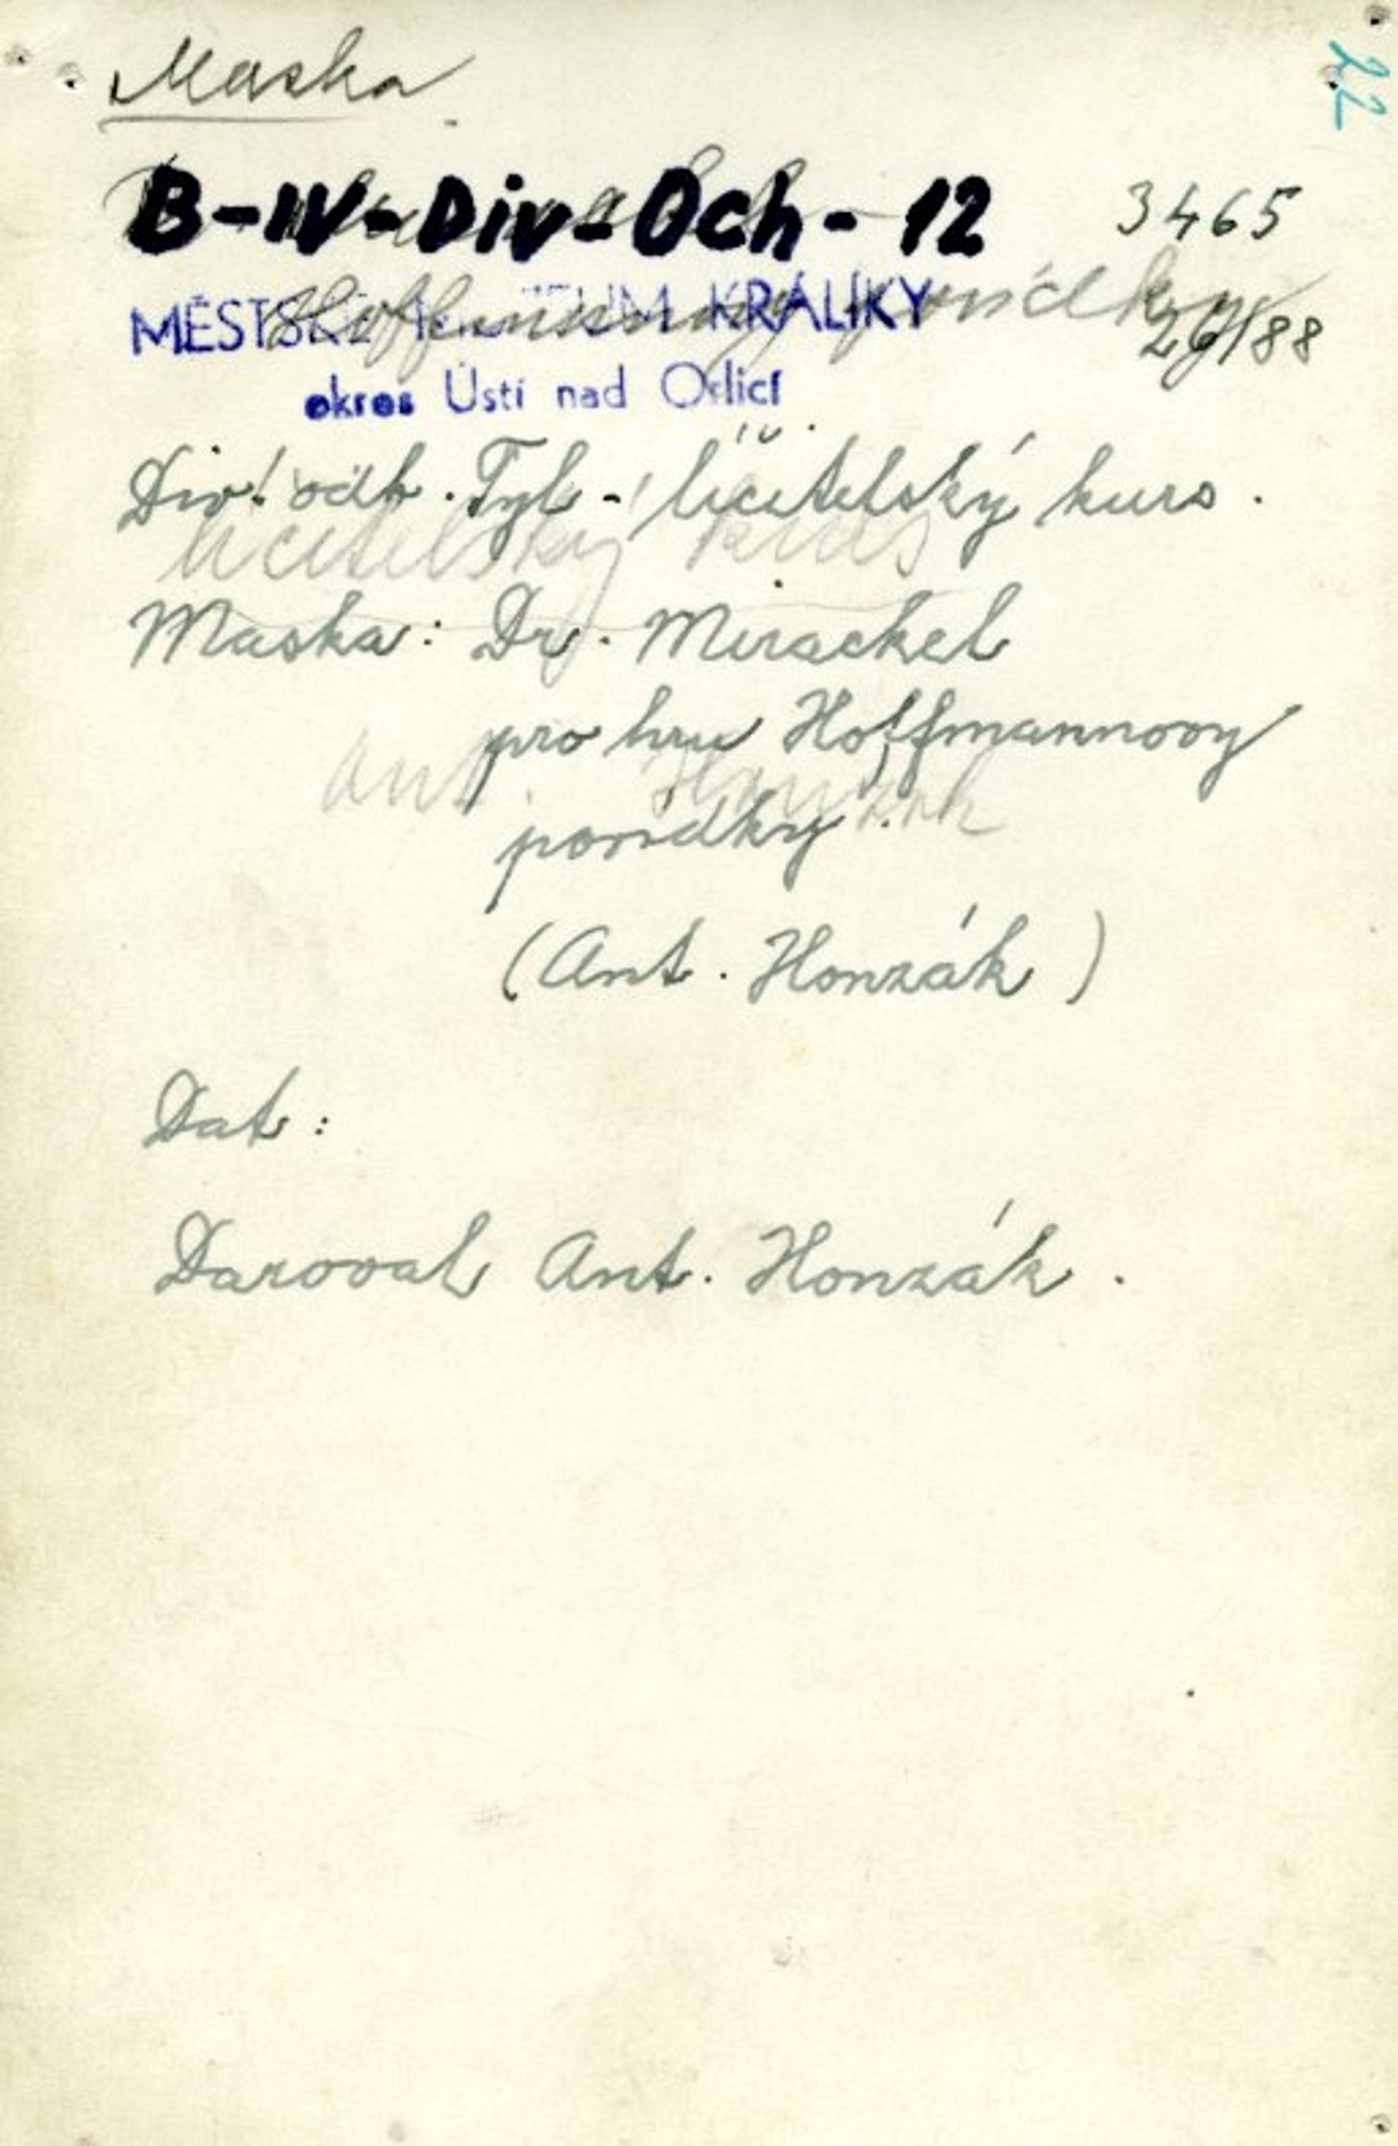 Maska
22
B-IV-Div-Och-12 3465
Hoffmannovy povídky
MĚSTSKÉ MUZEUM KRÁLÍKY 26/88
okres Ústí nad Orlicí
Div. odb. Tyl - líčitelský kurs.
líčitelský kurs
Maska: Dr. Mirackel
pro hru Hoffmannovy
Ant. Honzák
povídky.
(Ant. Honzák)
Dat:
Daroval Ant. Honzák.